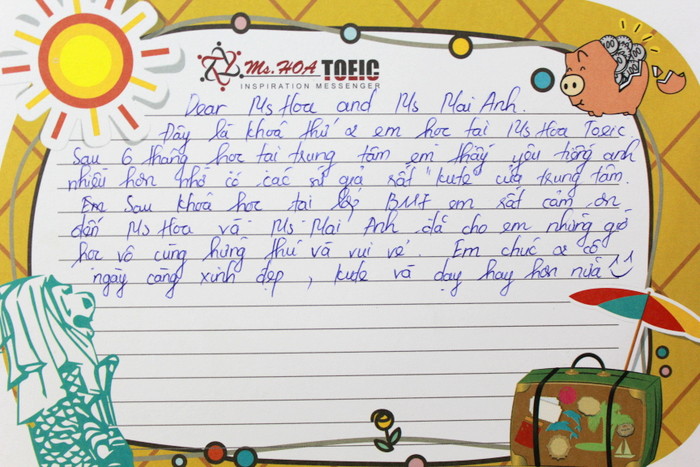 Ms.HOA TOEIC
INSPIRATION MESSENGER
Dear Ms Hoa and Ms Mai Anh.
Đây là khoá thứ 2 em học tại Ms Hoa Toeic.
Sau 6 tháng học tại trung tâm em thấy yêu tiếng anh
nhiều hơn nhờ có các sứ giả rất "kute" của trung tâm.
Em Sau khoá học tại lớp em rất cảm ơn
đến Ms Hoa và Ms Mai Anh đã cho em những giờ
học vô cùng hứng thú và vui vẻ. Em chúc 2 cô
ngày càng xinh đẹp, kute và dạy hay hơn nữa ^^